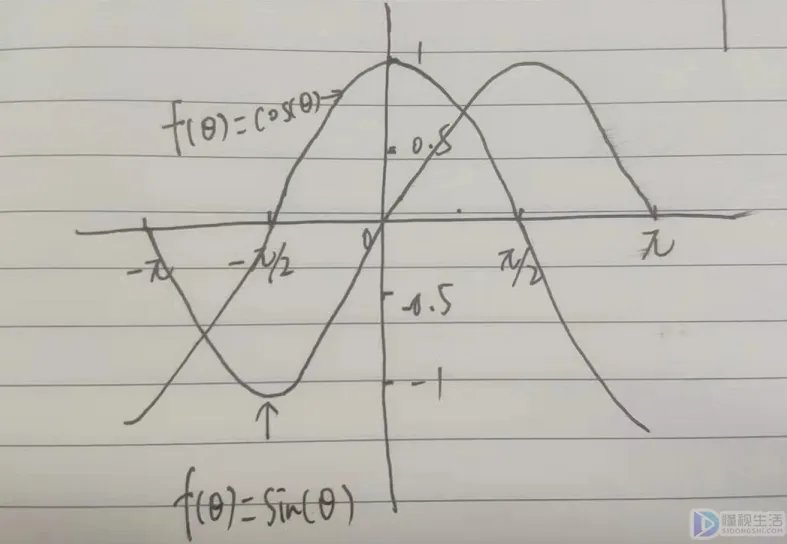 1
f(θ)=cos(θ)
0.5
-π
-π/2
0
π/2
π
-0.5
-1
f(θ)=sin(θ)
懂视生活
SIDONGSHI.COM